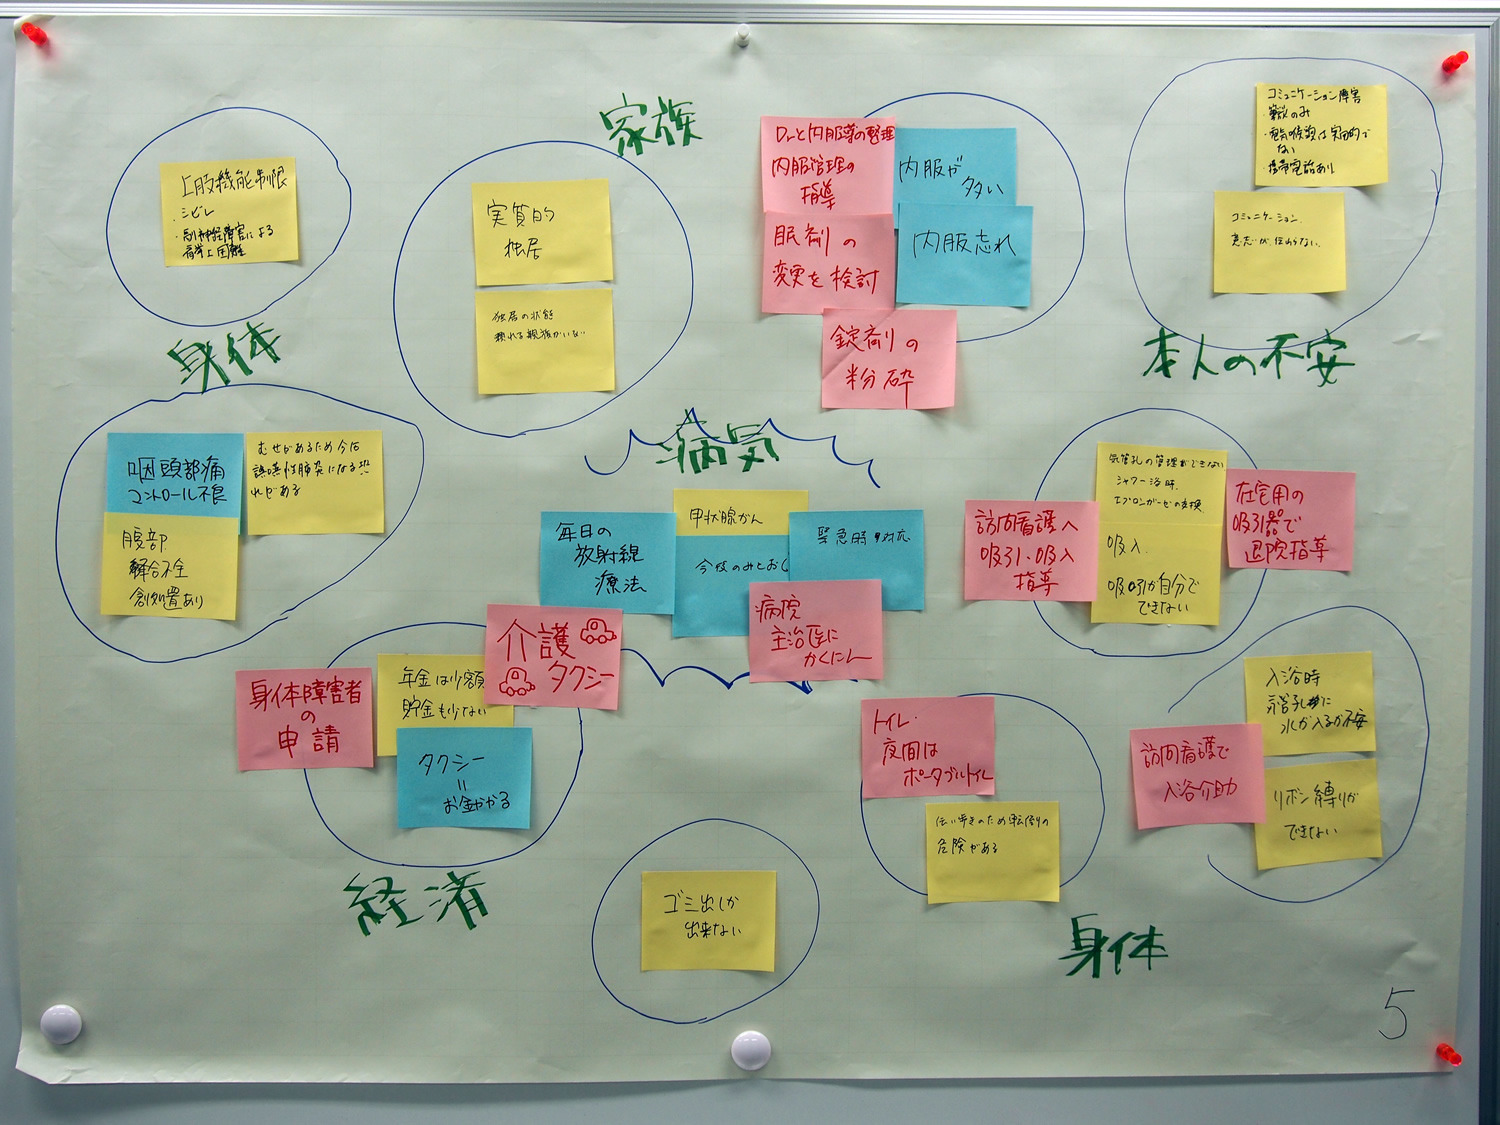 家族
上肢機能制限
・シビレ
・副神経障害による
肩挙上困難
身体
実質的
独居
独居の状態
頼れる親族がいない
Drと内服薬の整理
内服管理の
指導
内服が
多い
眠剤の
変更を検討
内服忘れ
錠剤の
粉砕
コミュニケーション障害
筆談のみ
・電気喉頭は実用的で
ない
・携帯電話あり
コミュニケーション
意志が伝わらない
本人の不安
咽頭部痛
コントロール不良
むせがあるため今后
誤嚥性肺炎になる恐
れがある
腹部
縫合不全
創処置あり
病気
甲状腺がん
毎日の
放射線
療法
今後のみとおし
緊急時の対応
病院
主治医に
かくにん
気管孔の管理ができない
シャワー浴時
エプロンガーゼの交換
訪問看護へ
吸引、吸入
指導
在宅用の
吸引器で
退院指導
吸入、
吸引が自分で
できない
介護
タクシー
年金は少額
貯金も少ない
身体障害者
の
申請
タクシー
=
お金がかかる
経済
トイレ
夜間は
ポータブルトイレ
伝い歩きのため転倒の
危険がある
入浴時
水が入るか不安
訪問看護で
入浴介助
リボン縛りが
できない
ゴミ出しが
出来ない
身体
5